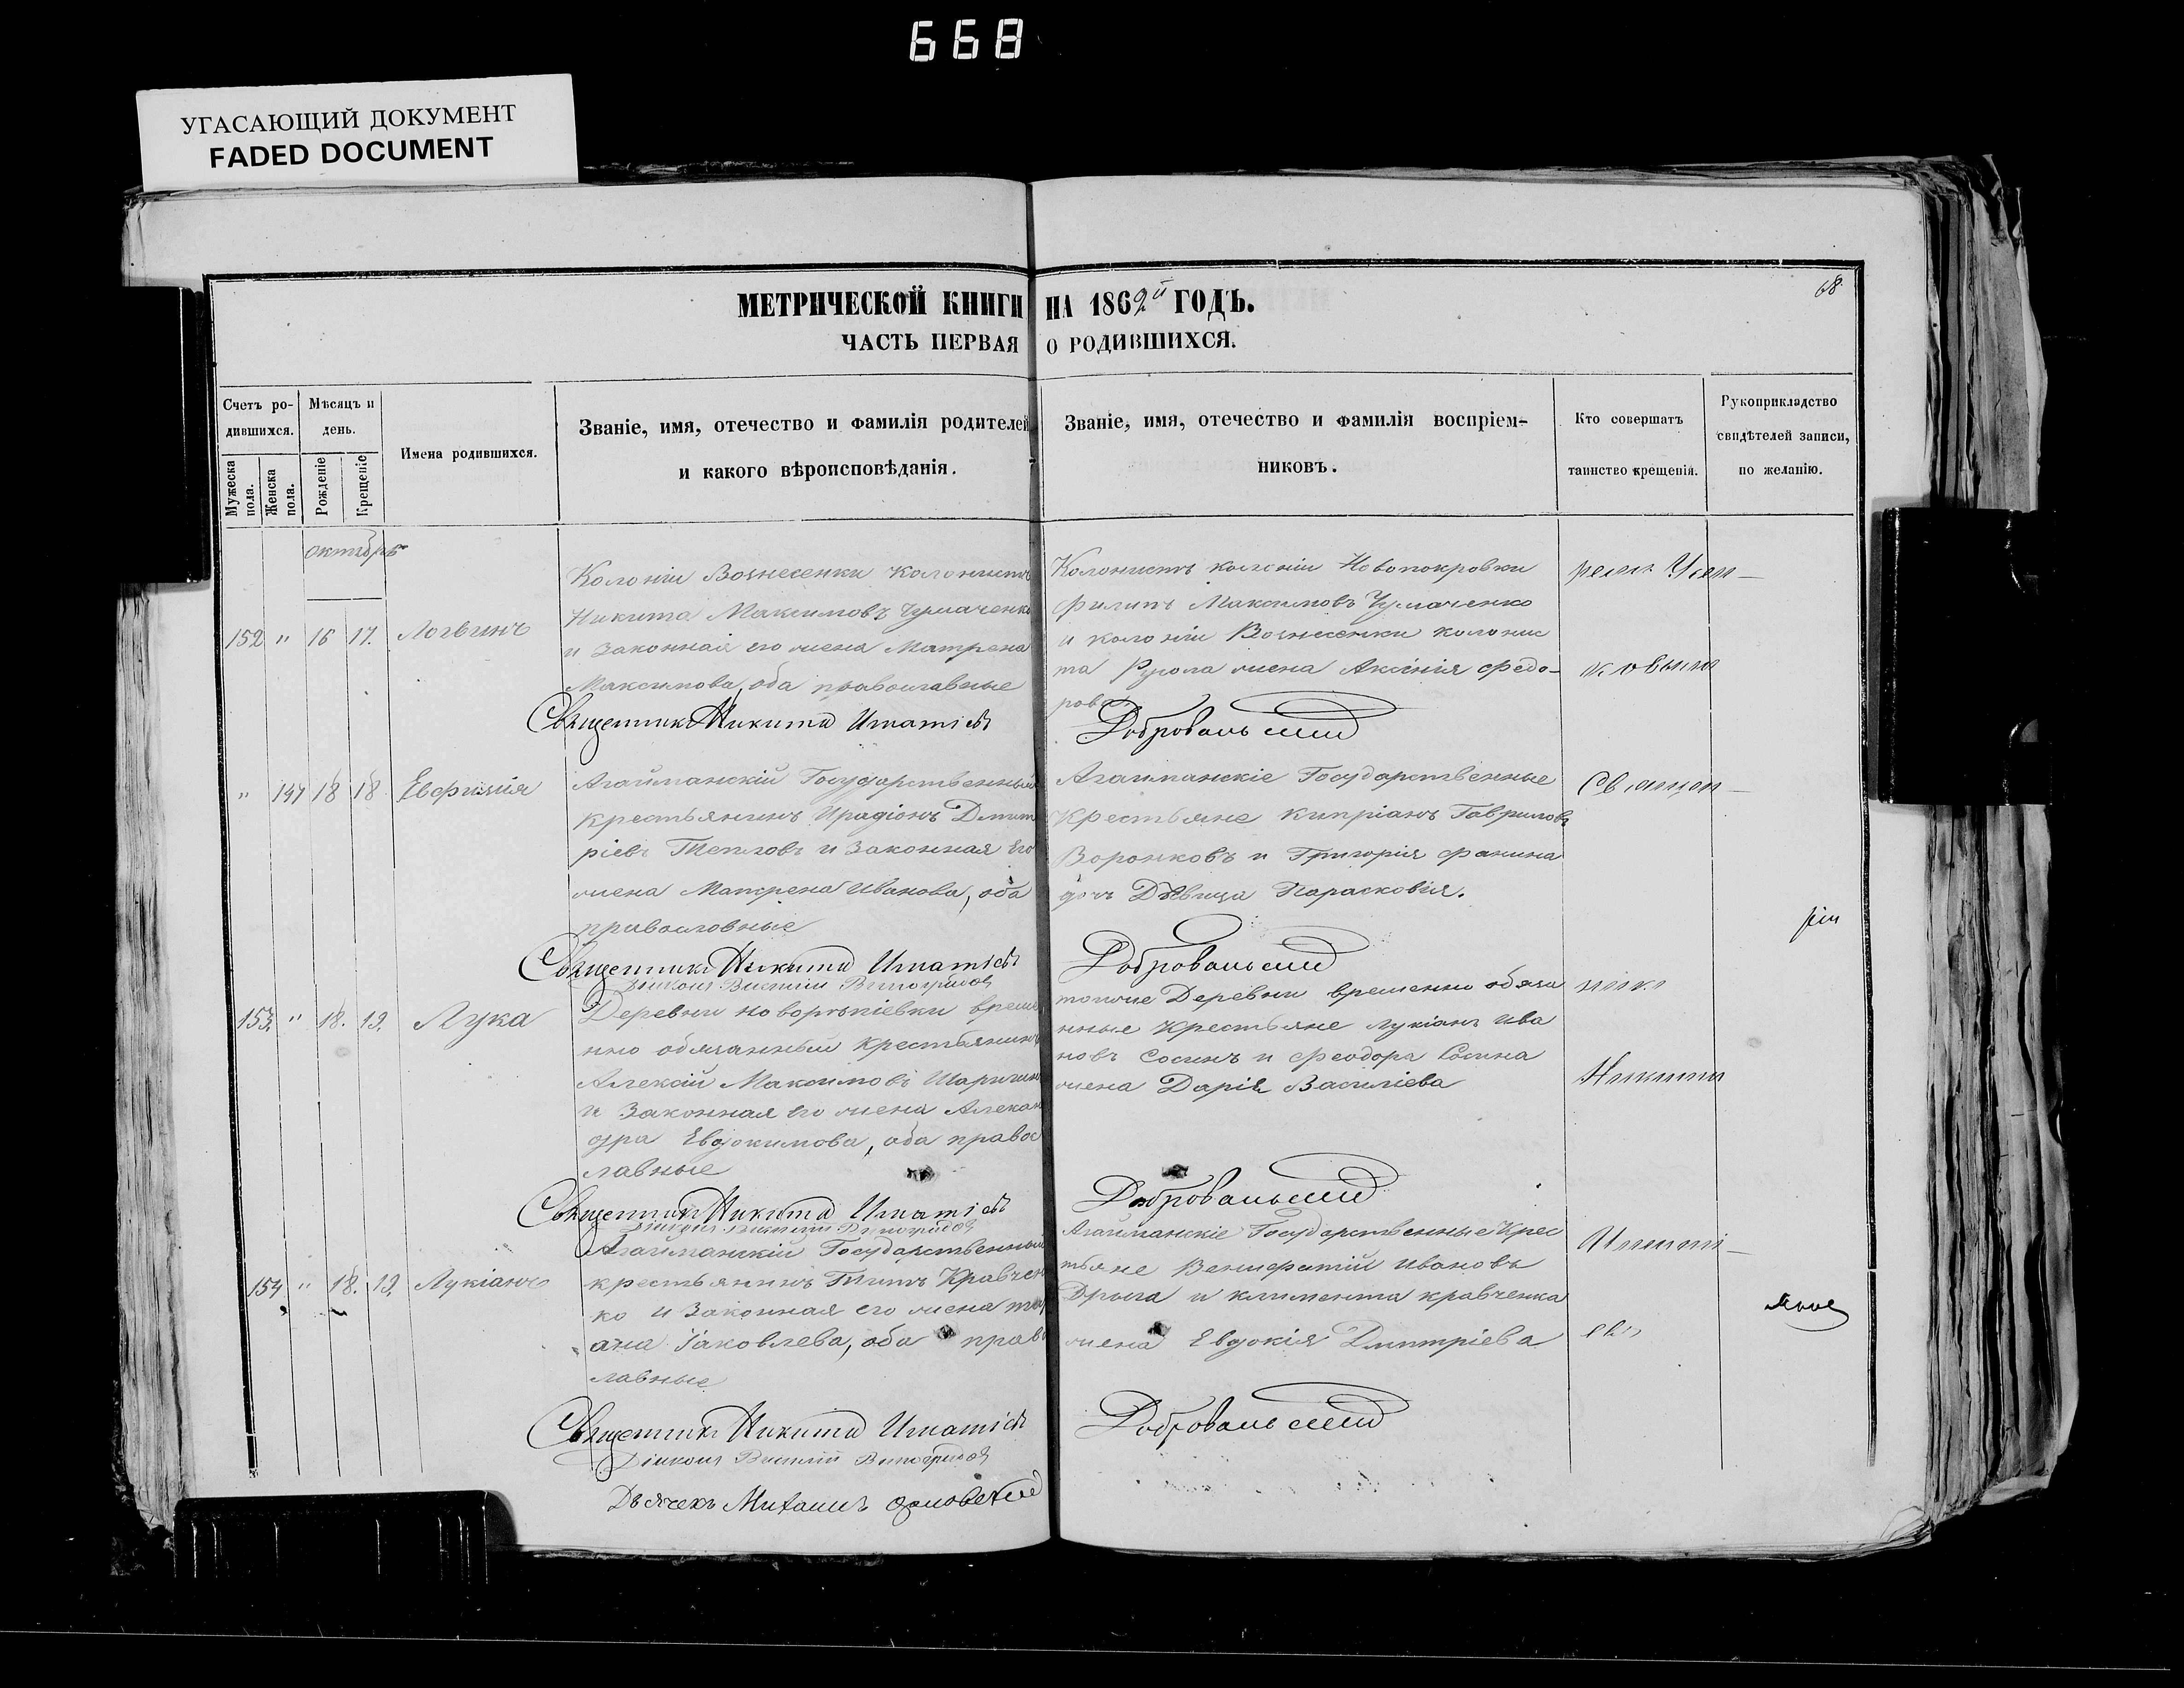 668
УГАСАЮЩИЙ ДОКУМЕНТ
FADED DOCUMENT
68
МЕТРИЧЕСКОЙ КНИГИ НА 1862й ГОДЪ.
ЧАСТЬ ПЕРВАЯ О РОДИВШИХСЯ.
Счетъ ро-
дившихся.
Мужеска пола.
Женска пола.
Мѣсяцъ и день.
Рожденіе
Крещеніе
Имена родившихся.
Званіе, имя, отечество и фамилія родителей
и какого вѣроисповѣданія.
Званіе, имя, отечество и фамилія воспріем-
никовъ.
Кто совершатъ
таинство крещенія.
Рукоприкладство
свидѣтелей записи,
по желанію.
октябрь
152 " 16 17. Логвинъ
Колоніи Вознесенки колонистъ
Никита Максимовъ Чумаченко
и законная его жена Матрена
Максимова, оба православные
Колонистъ колоніи Новопокровки
Филипъ Максимовъ Чумаченко
и колоніи Вознесенки колонис
та жена Аксинія Федо-
рова.
Священникъ Никита Игнатіевъ Добровольскій
" 147 18 18 Евфимія
Агайманскій Государственный
крестьянинъ Иродіонъ Дмит
ріевъ Тепловъ и законная его
жена Матрена Иванова, оба
православные
Агайманскіе Государственные
Крестьяне Кипріанъ Гавриловъ
Воронковъ и Григорія Фанина
дочь Дѣвица Парасковія.
Священ-
Священникъ Никита Игнатіевъ Добровольскій
Діаконъ Василій Виноградовъ
153. " 18. 19. Лука
Деревни временно
обязанный крестьянинъ
Алексій Максимовъ
и законная его жена Алексан
дра Евдокимова, оба правос
лавные
тойже Деревни временно обяза
нные Крестьяне Лукіанъ Ива
новъ Сосинъ и Феодора Сосина
жена Дарія Василіева
никъ
Никита
Священникъ Никита Игнатіевъ Добровольскій
Діаконъ Василій Виноградовъ
154 " 18. 19. Лукіанъ
Агайманскій Государственный
крестьянинъ Титъ Кравчен
ко и законная его жена
Іаковлева, оба право
лавные
Агайманскіе Государственные Крес
тьяне Венифатій Ивановъ
Дрыга и климента кравченка
жена Евдокія Дмитріева
Игнаті-
евъ
Священникъ Никита Игнатіевъ Добровольскій
Діаконъ Василій Виноградовъ
Дьячекъ Михаилъ Орловскій